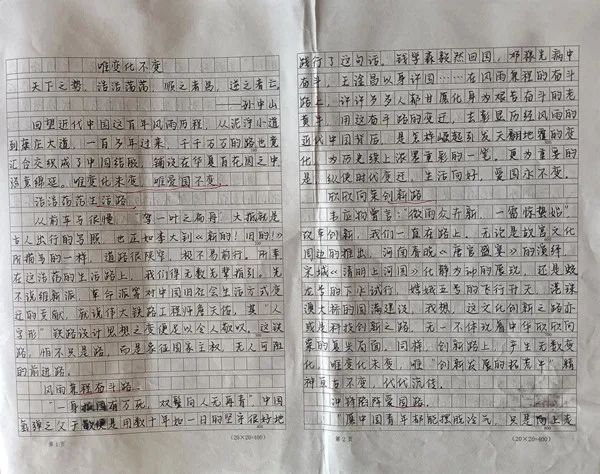 唯变化不变
天下之势，浩浩荡荡，顺之者昌，逆之者亡。
——孙中山
回望近代中国这百年风雨历程，从泥泞小道
到康庄大道，一百多年过来，千千万万的路也竟
汇合交织成了中国结般，铺设在华夏百花园之中
绵延。唯变化未变，唯爱国不变。
浩浩荡荡生活路
从前车马很慢，“驾一叶之扁舟”大抵就是
古人出行的写照，也正如李大钊《新的！旧的！》
所描写的一样，道路很狭窄，极不易前行。所幸
在这浩荡的生活路上，我们得无数先辈指引。先
不说维新派、革命派等对中国旧社会生活方式变
迁的贡献，就说伟大铁路工程师詹天佑，其“人
字形”铁路设计思想之变便足以令人敬叹，这铁
路，怕不只是路，而是象征国家主权，无人可阻
的前进路。
风雨兼程奋斗路
“一身报国有万死，双鬓向人无再青”中国
氢弹之父于敏便是用数十年如一日的坚守很好地
第 1 页
(20×20=400)
践行了这句话。钱学森毅然回国，邓稼先病中
奋斗，王淦昌以身许国……在风雨兼程的奋斗
路上，许许多多人都甘愿化身为艰苦奋斗的老
黄牛，用这奋斗路的变迁，去彰显历经风雨的
近代中国背后，是怎样崛起引发天翻地覆的变
化，为历史续上浓墨重彩的一笔。更为重要的
是，纵使时代变迁，生活向好，爱国永不变。
欣欣向荣创新路
韦应物曾言：“微雨众卉新，一雷惊蛰始”。
改革创新，我们一直在路上。无论是故宫文化
周边的推出，河南春晚《唐宫盛宴》的演绎，
宋城《清明上河图》化静为动的展现，还是蛟
龙号的下水试行，嫦娥五号的飞行开天，港珠
澳大桥的圆满建设，我想，这文化创新之路亦
或是科技创新之路，无一不体现着中华欣欣向
荣的复兴局面。同样，创新路上，产生无数变
化，唯变化未变，唯“创新发展的拓荒牛”精
神亘古不变，代代流传。
冲锋陷阵爱国路
“愿中国青年都能摆脱冷气，只是向上走
第 2 页
(20×20=400)